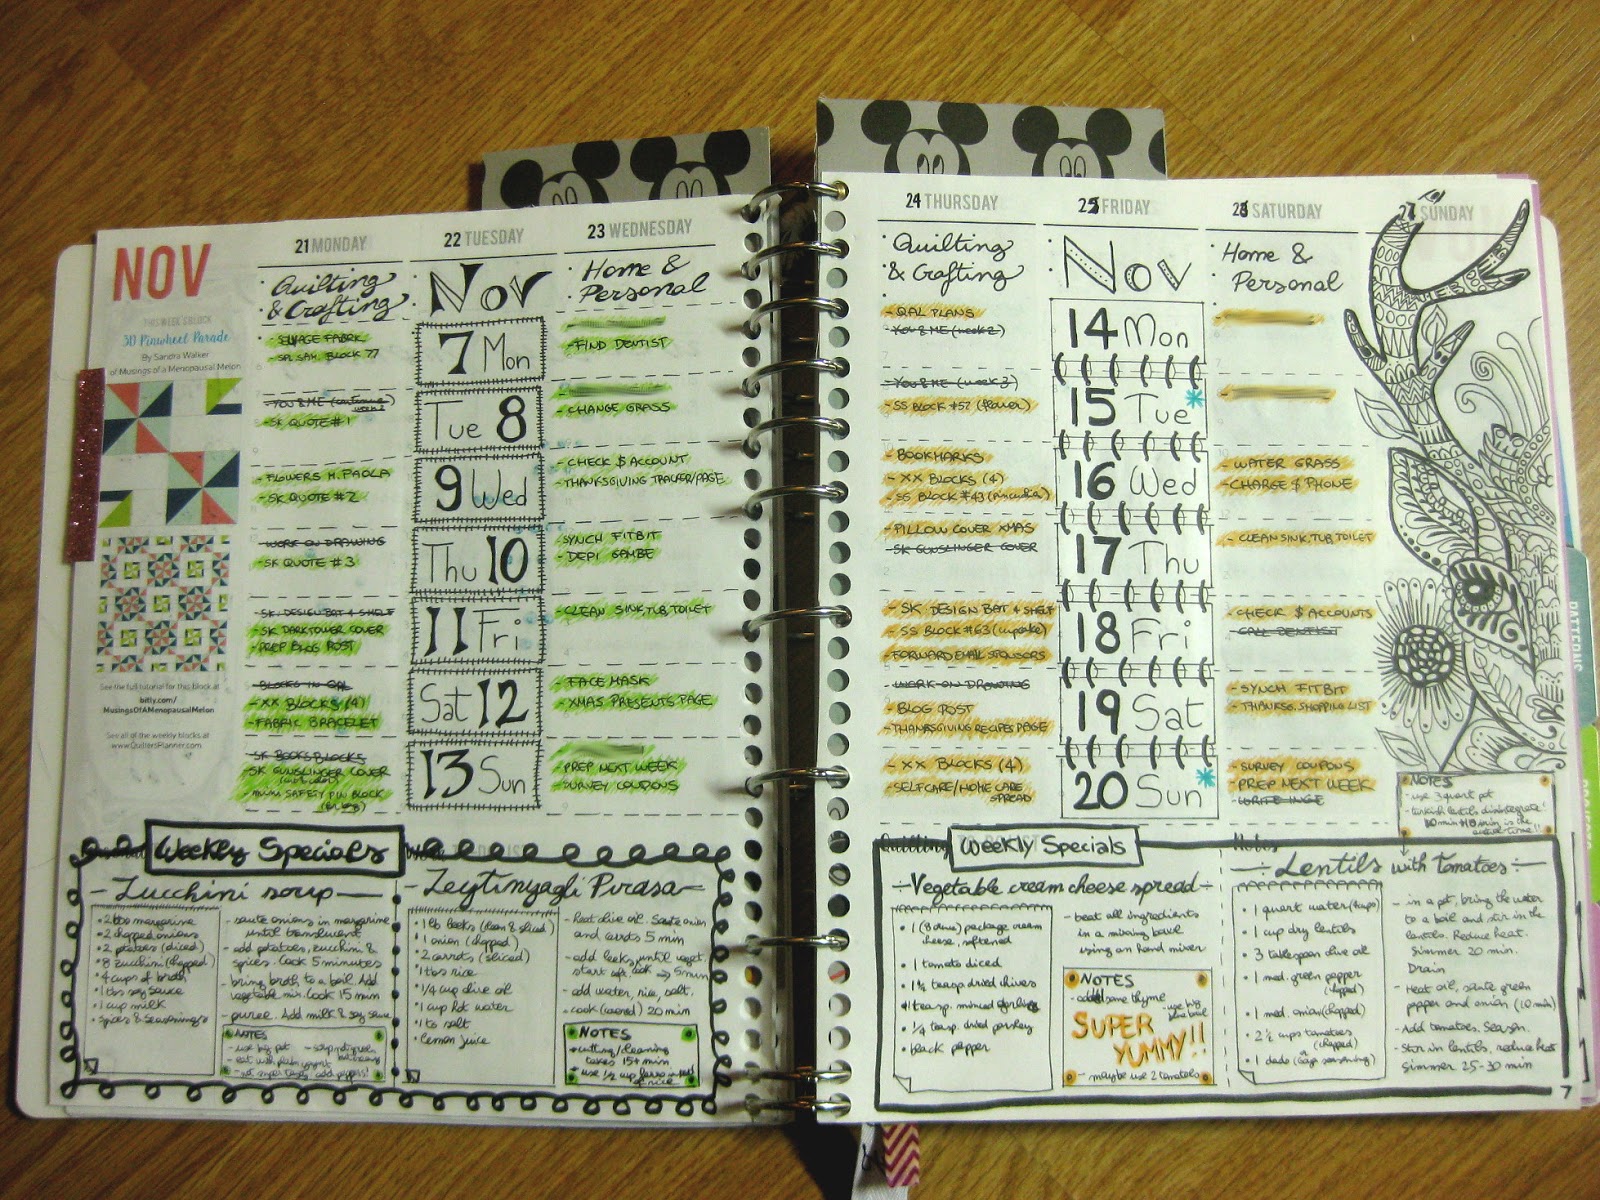 NOV
THIS WEEK'S BLOCK
3D Pinwheel Parade
By Sandra Walker
of Musings of a Menopausal Melon
See the full tutorial for this block at
bitly.com/
MusingsOfAMenopausalMelon
See all of the weekly blocks at
www.QuiltersPlanner.com
21 MONDAY
Quilting
& Crafting
- SELVAGE FABRIC
- SPL SAM. BLOCK 77
- YOU & ME (continue
week 2)
- SK QUOTE #1
- FLOWERS M. PAOLA
- SK QUOTE #2
- WORK ON DRAWING
- SK QUOTE #3
- SK. DESIGN BAT & SHELF
- SK DARKTOWER COVER
- PREP BLOG POST
- BLOCKS IN QAL
- XX BLOCKS (4)
- FABRIC BRACELET
- SK BOOKS BLOCKS
- SK GUNSLINGER COVER
- MINI SAFETY PIN BLOCK
22 TUESDAY
Nov
7 Mon
Tue 8
9 Wed
Thu 10
11 Fri
Sat 12
13 Sun
23 WEDNESDAY
Home &
Personal
- FIND DENTIST
- CHANGE GRASS
- CHECK $ ACCOUNT
- THANKSGIVING TRACKER/PAGE
SYNCH FITBIT
- DEPI GAMBE
- CLEAN SINK, TUB, TOILET
- FACE MASK
- XMAS PRESENTS PAGE
- PREP NEXT WEEK
- SURVEY COUPONS
Weekly Specials
- Zucchini soup
• 2 tbs margarine
• 2 chopped onions
• 2 potatoes (diced)
• 8 zucchini (chopped)
• 4 cups of broth
• 1 tbs soy sauce
• 1 cup milk
• spices & seasonings
- saute onions in margarine
until translucent
- add potatoes, zucchini &
spices. Cook 5 minutes
- bring broth to a boil. Add
vegetable mix. Cook 15 min
- puree. Add milk & soy sauce
NOTES
- use big pot
- Zeytinyagli Pirasa
• 1 lb leeks (clean & sliced)
• 1 onion (chopped)
• 2 carrots (sliced)
• 1 tbs rice
• 1/4 cup olive oil
• 1 cup hot water
• 1 ts salt
• lemon juice
- Heat olive oil. Saute onion
and carrots 5 min
- add water, rice, salt.
- cook (covered) 20 min
NOTES
• cutting/cleaning
takes 15+ min
24 THURSDAY
Quilting
& Crafting
- QAL PLANS
- YOU & ME (week 2)
- YOU & ME (week 3)
- SS BLOCK #57 (flower)
- BOOKMARKS
- XX BLOCKS (4)
- SS BLOCK #43
- PILLOW COVER XMAS
- SK GUNSLINGER COVER
- SK DESIGN BAT & SHELF
- SS BLOCK #63 (cupcake)
- FORWARD EMAIL SPONSORS
- WORK ON DRAWING
- BLOG POST
- THANKSGIVING RECIPES PAGE
- XX BLOCKS (4)
- SELFCARE/HOME CARE
SPREAD
25 FRIDAY
Nov
14 Mon
15 Tue
16 Wed
17 Thu
18 Fri
19 Sat
20 Sun
SATURDAY
Home &
Personal
- WATER GRASS
- CHARGE $ PHONE
- CLEAN SINK, TUB, TOILET
- CHECK $ ACCOUNTS
- CALL DENTIST
- SYNCH FITBIT
- THANKSG. SHOPPING LIST
- SURVEY COUPONS
- PREP NEXT WEEK
SUNDAY
NOTES
- use 3 quart pot
Weekly Specials
Vegetable cream cheese spread
• 1 (8 ounce) package cream
cheese, softened
• 1 tomato diced
• 1 1/2 teasp dried chives
• 1 teasp. minced garlic
• 1/4 teasp. dried parsley
• black pepper
- beat all ingredients
in a mixing bowl
using an hand mixer
NOTES
- add some thyme
SUPER
YUMMY!!
- maybe use 2 tomatoes
Lentils with Tomatoes
• 1 quart water
• 1 cup dry lentils
• 3 tablespoon olive oil
• 1 med. green pepper
(chopped)
• 1 med. onion (chopped)
• 2 1/2 cups tomatoes
(chopped)
- in a pot, bring the water
to a boil and stir in the
lentils. Reduce heat.
Simmer 20 min.
Drain
- Heat oil, saute green
pepper and onion (10 min)
- Add tomatoes. Season.
- Stir in lentils, reduce heat
Simmer 25-30 min
7
PATTERNS